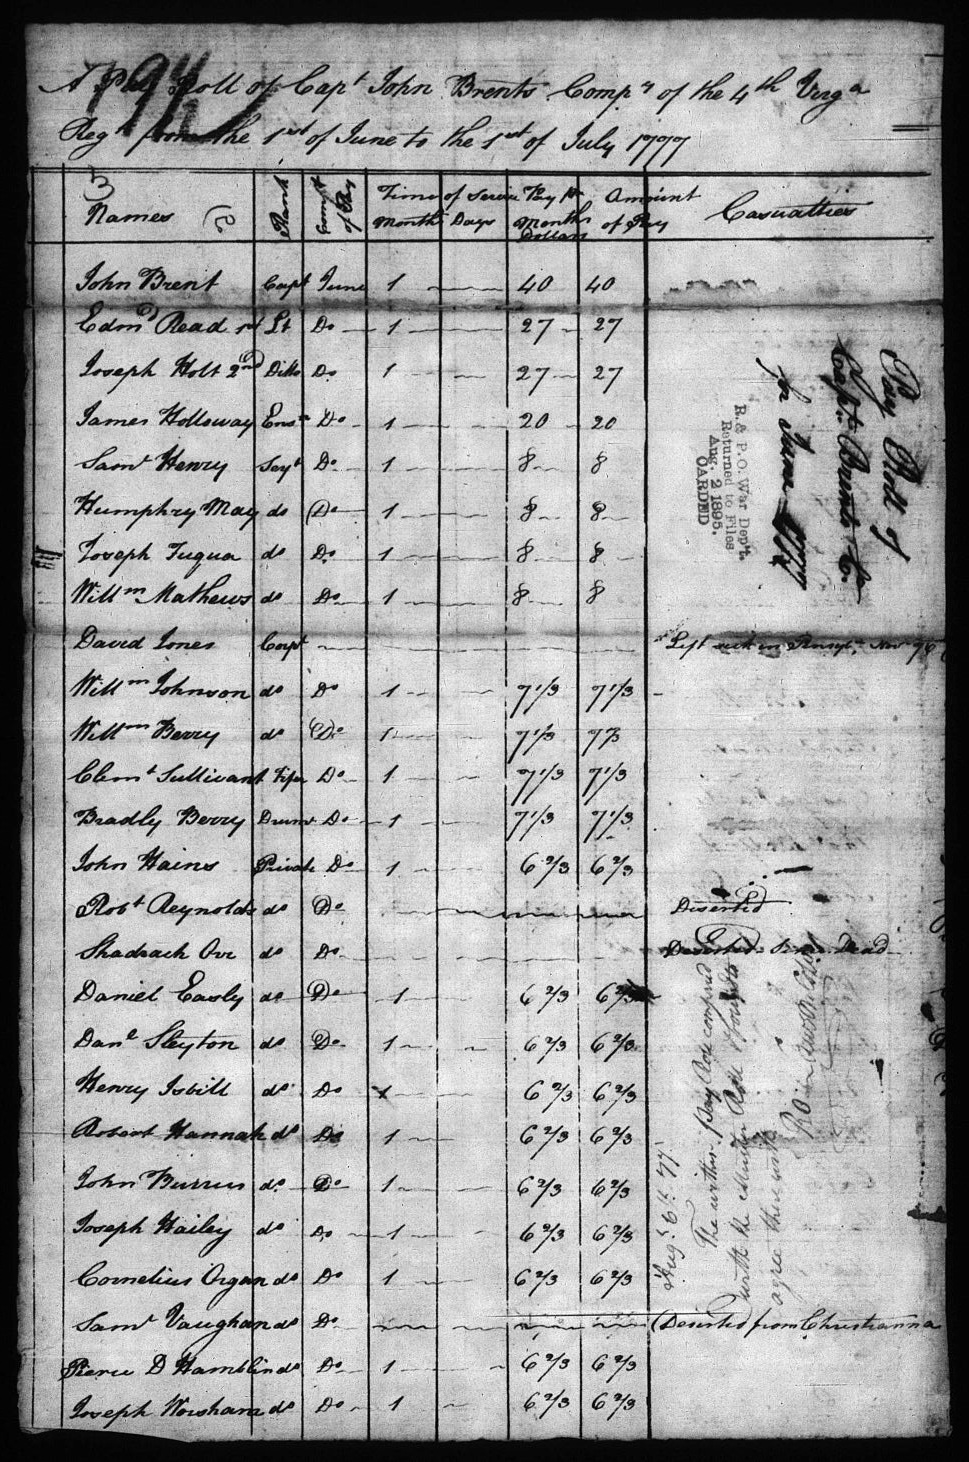 A Pay Roll of Capt John Brents Compy of the 4th Virga
Regt from the 1st of June to the 1st of July 1777
194
3
Names Rank Compt of Pay Time of Service Months Days Pay Pr Month Dollars Amount of Pay Casualties
John Brent Capt June 1 40 40
Edmd Read 1st Lt Do 1 27 27
Joseph Holt 2nd Ditto Do 1 27 27
James Holloway Ensn Do 1 20 20
Saml Henry Sayt Do 1 8 8
Humphry May do Do 1 8 8
Joseph Fuqua do Do 1 8 8
Willm Mathews do Do 1 8 8
David Jones Corpt Left sick in Pensyla Novr 76
Willm Johnson do Do 1 7 1/3 7 1/3
Willm Berry do Do 1 7 1/3 7 1/3
Clemt Sullivant Fifer Do 1 7 1/3 7 1/3
Bradly Berry Drumr Do 1 7 1/3 7 1/3
John Hains Private Do 1 6 2/3 6 2/3
Robt Reynolds do Do Deserted
Shadrach Orr do Do Deserted Since Dead
Daniel Easly do Do 1 6 2/3 6 2/3
Danl Sleyton do Do 1 6 2/3 6 2/3
Henry Isbill do Do 1 6 2/3 6 2/3
Robert Hannah do Do 1 6 2/3 6 2/3
John Burrus do Do 1 6 2/3 6 2/3
Joseph Hailey do Do 1 6 2/3 6 2/3
Cornelius Organ do Do 1 6 2/3 6 2/3
Saml Vaughan do Do Deserted from Christianna
Pierce D Hamblin do Do 1 6 2/3 6 2/3
Joseph Worsham do Do 1 6 2/3 6 2/3
Pay Roll of
Capt. Brents Co
for June 1777
R. & P. O. War Dep't.
Returned to Files
Aug. 2 1895.
CARDED
Augt. 6th. 77.
The within Pay Roll compared
with the Muster Roll & found to
agree therewith